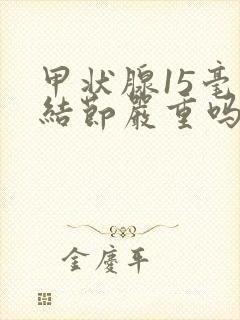 甲状腺15毫
結節嚴重吗
金慶平